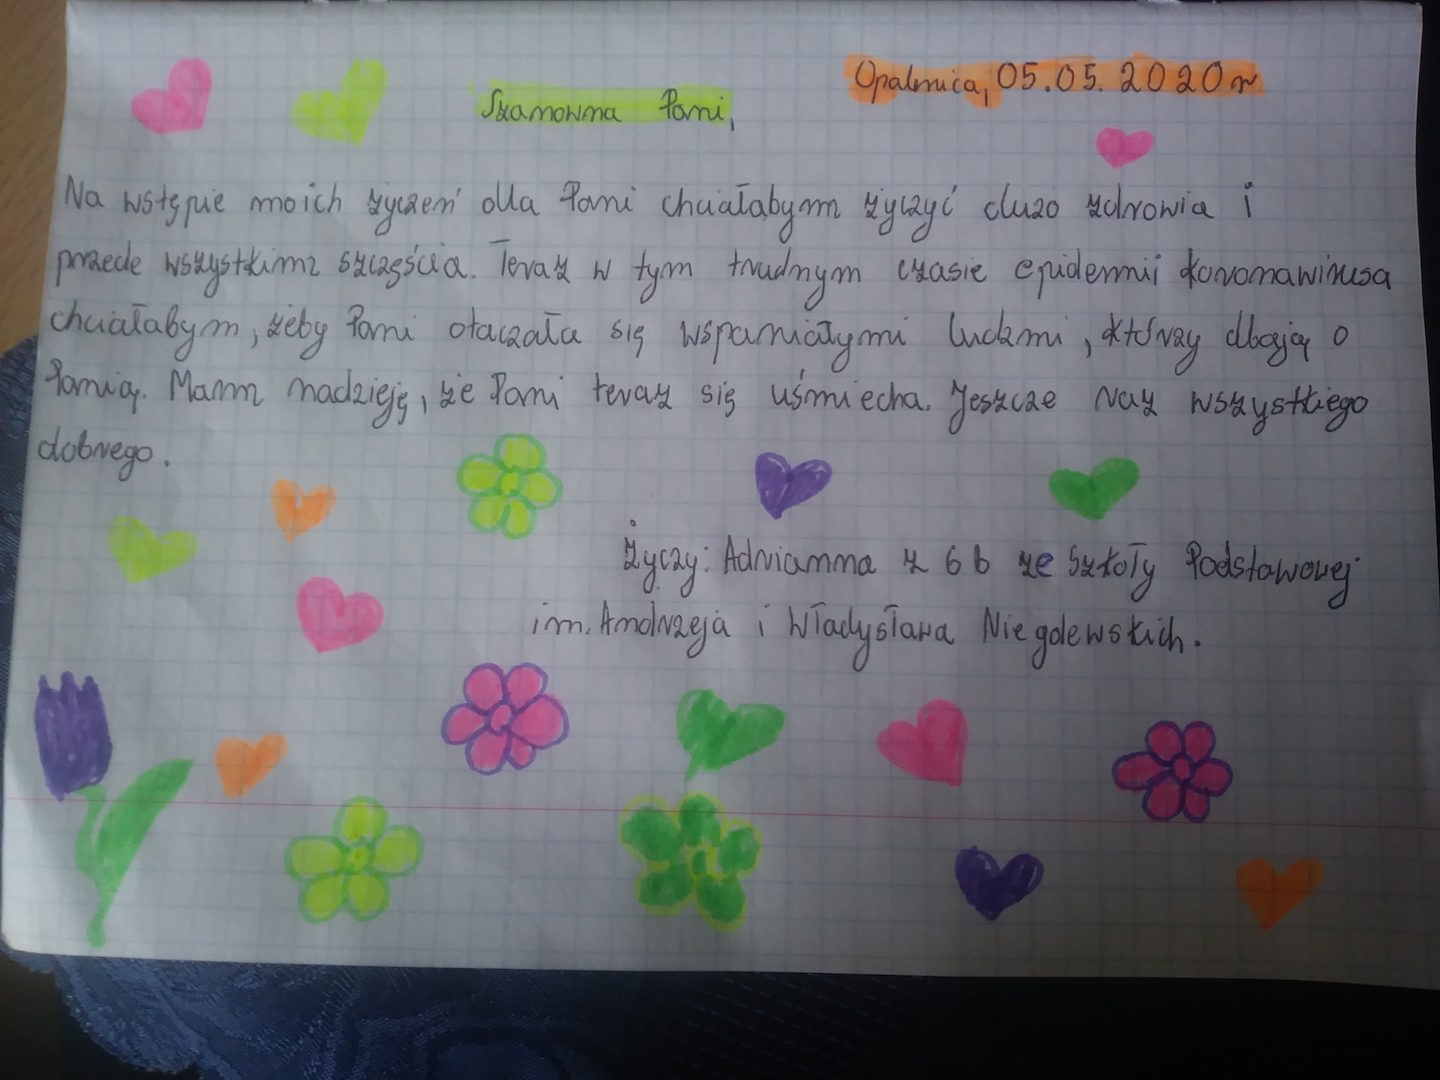 Opalenica, 05.05.2020r
Szanowna Pani,
Na wstępie moich życzeń dla Pani chciałabym życzyć dużo zdrowia i
przede wszystkim szczęścia. Teraz w tym trudnym czasie epidemii koronawirusa
chciałabym, żeby Pani otaczała się wspaniałymi ludźmi, którzy dbają o
Panią. Mam nadzieję, że Pani teraz się uśmiecha. Jeszcze raz wszystkiego
dobrego.
Życzy: Adrianna z 6b ze Szkoły Podstawowej
im. Andrzeja i Władysława Niegolewskich.